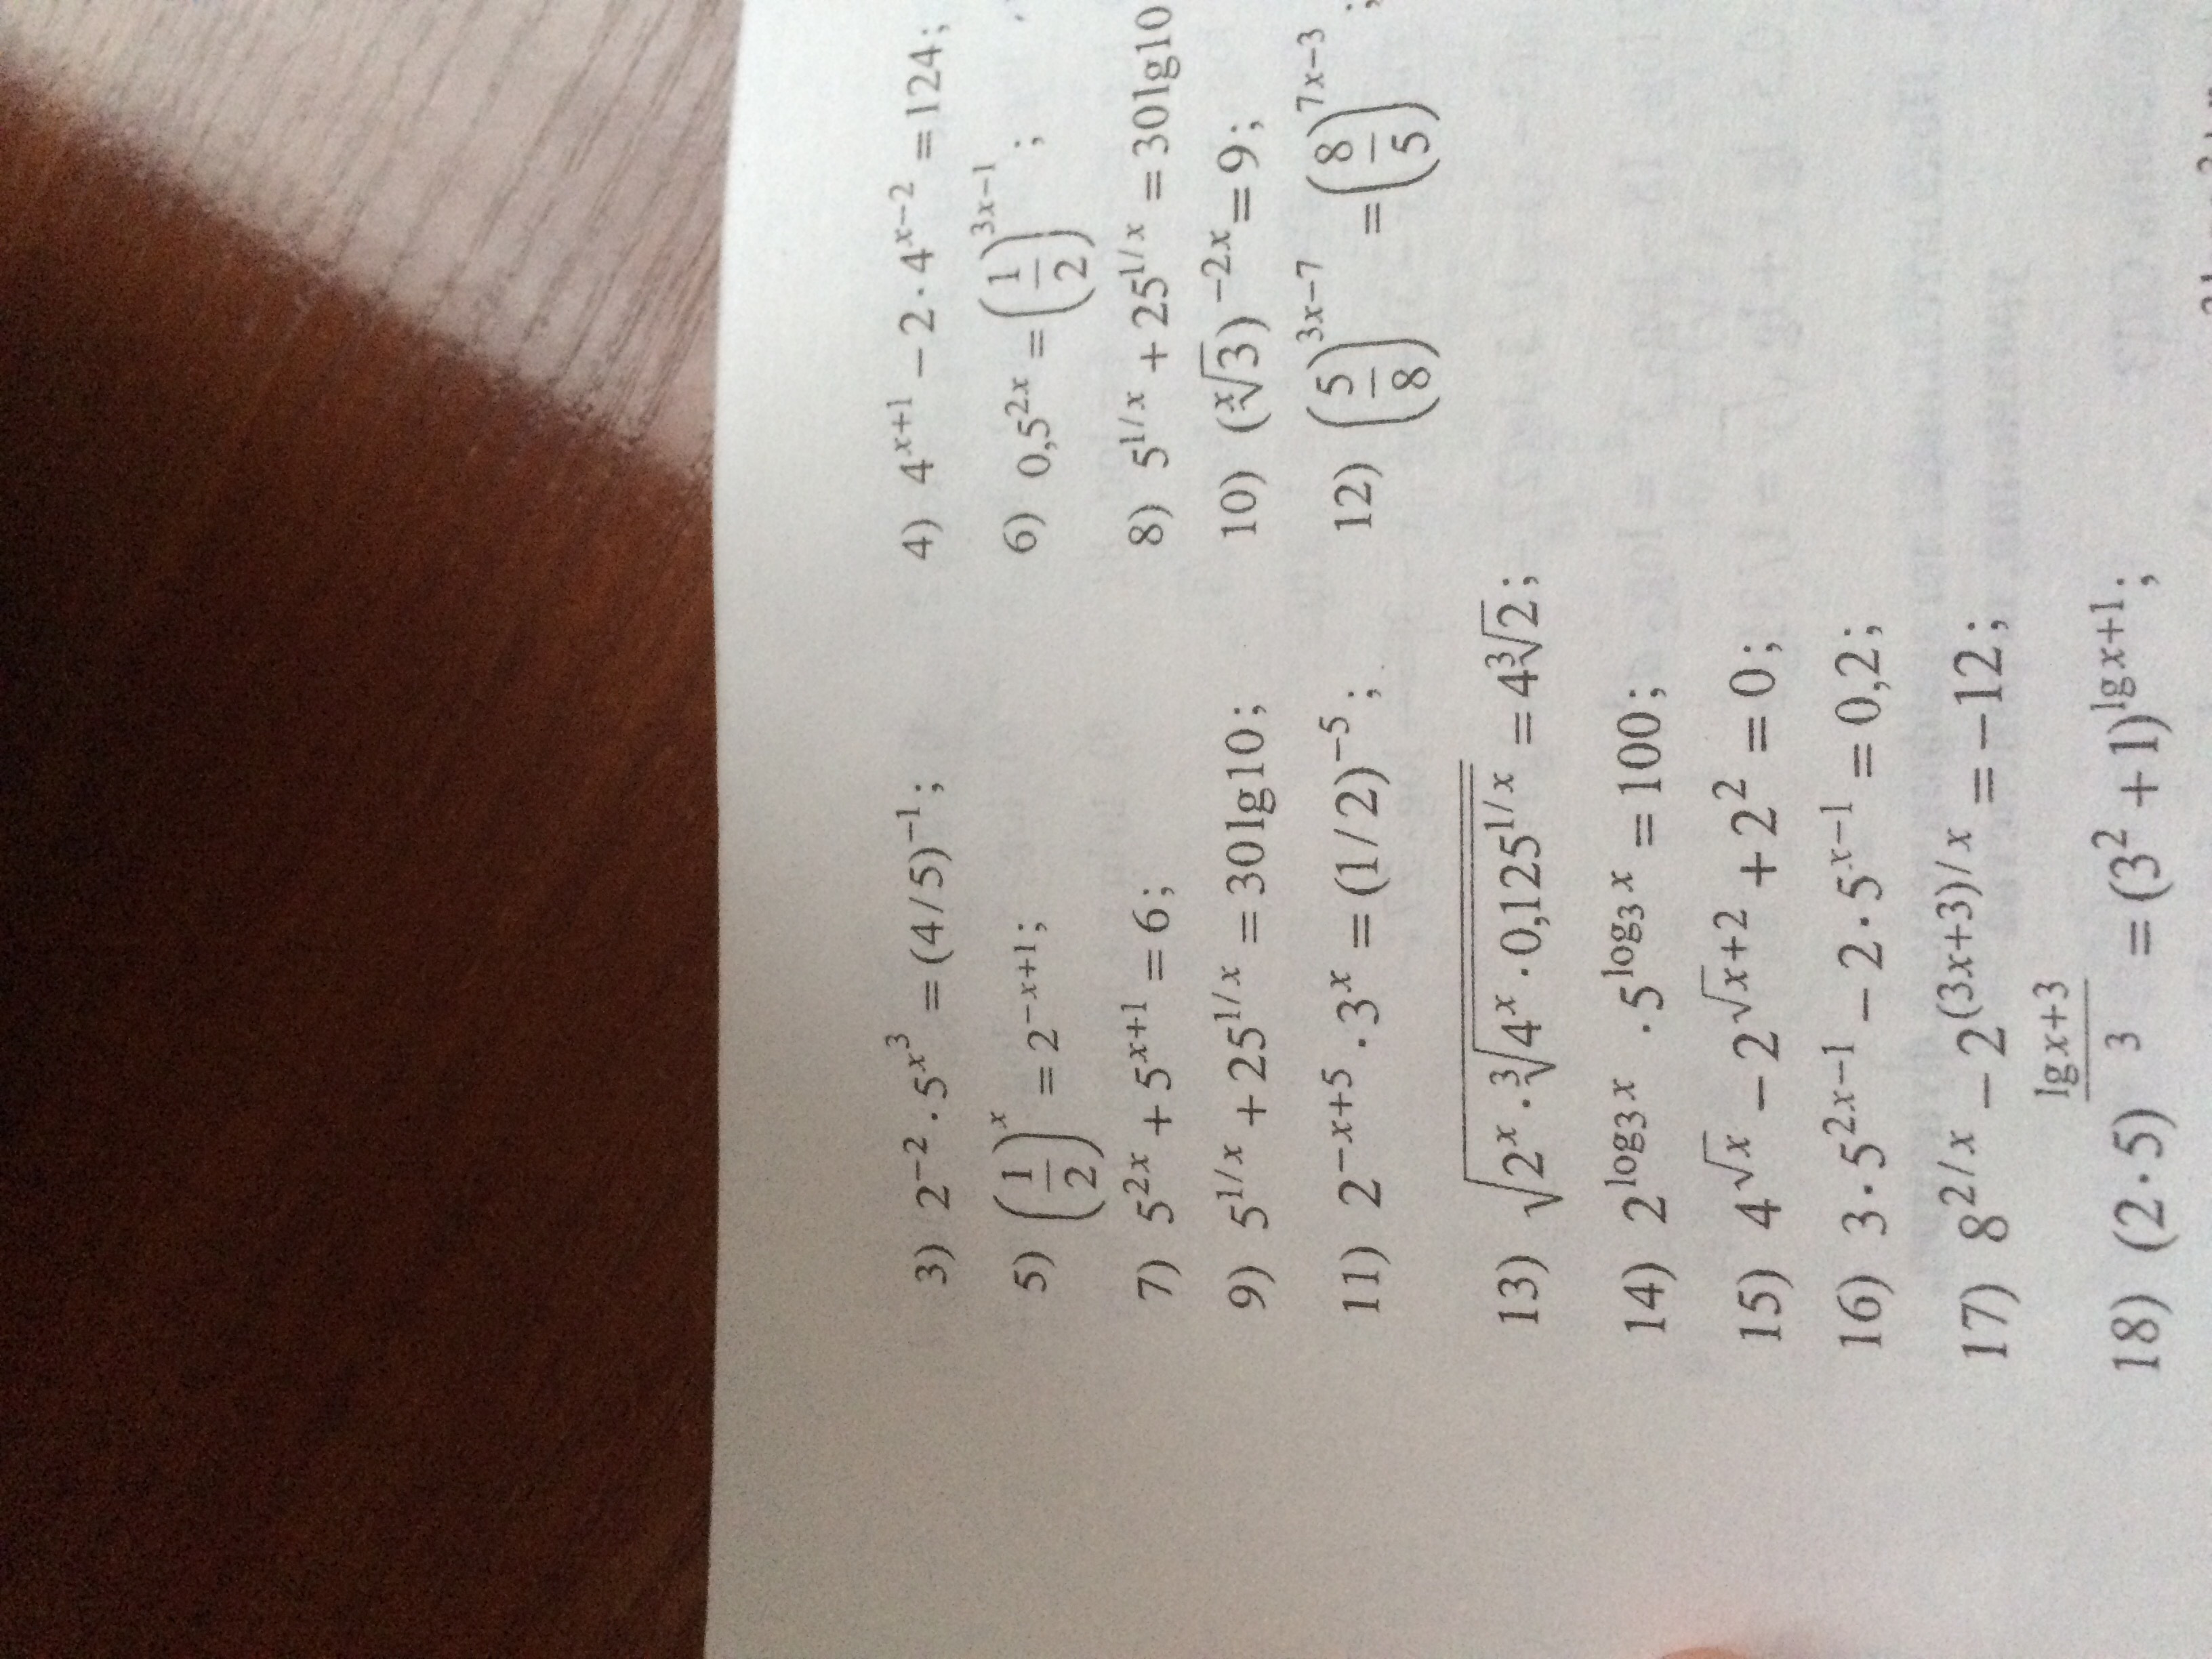 3) 2⁻² · 5^{x³} = (4/5)⁻¹; 4) 4^{x+1} − 2 · 4^{x−2} = 124;
5) (1/2)^x = 2^{−x+1}; 6) 0,5^{2x} = (1/2)^{3x−1};
7) 5^{2x} + 5^{x+1} = 6; 8) 5^{1/x} + 25^{1/x} = 30lg10
9) 5^{1/x} + 25^{1/x} = 30lg10; 10) (ˣ√3)^{−2x} = 9;
11) 2^{−x+5} · 3^x = (1/2)⁻⁵; 12) (5/8)^{3x−7} = (8/5)^{7x−3};
13) √(2^x · ³√(4^x · 0,125^{1/x})) = 4³√2;
14) 2^{log₃x} · 5^{log₃x} = 100;
15) 4^{√x} − 2^{√x+2} + 2² = 0;
16) 3 · 5^{2x−1} − 2 · 5^{x−1} = 0,2;
17) 8^{2/x} − 2^{(3x+3)/x} = −12;
18) (2 · 5)^{(lg x+3)/3} = (3² + 1)^{lg x+1};